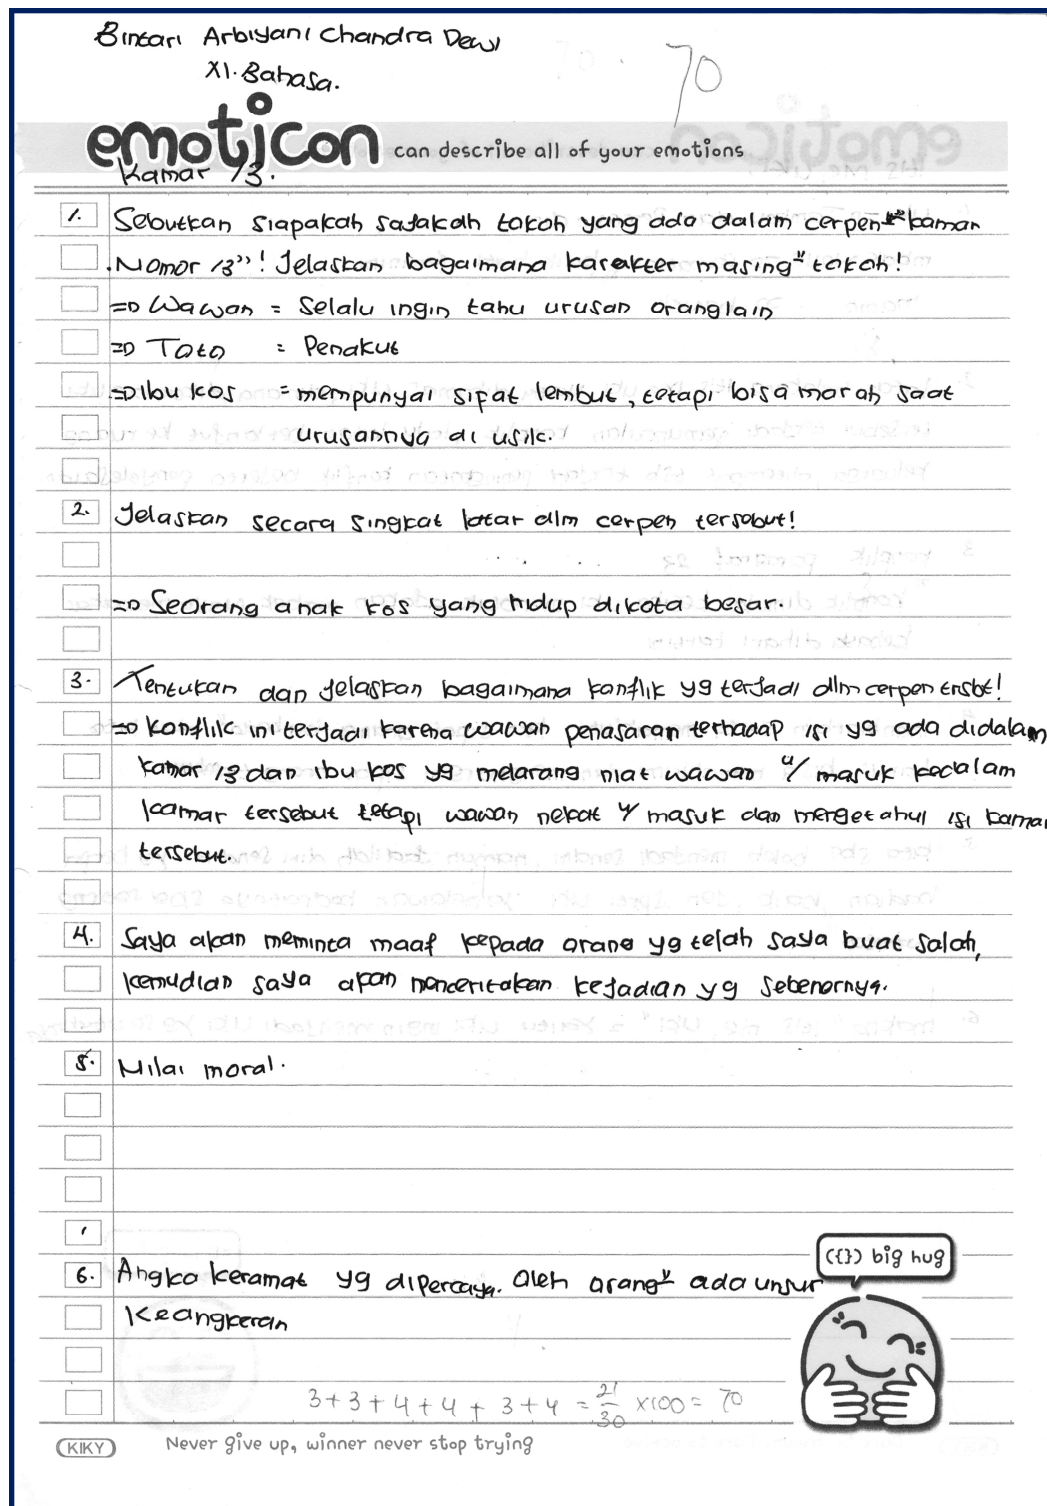 Bintari Arbiyani Chandra Dewi
XI. Bahasa.
70
emoticon can describe all of your emotions
Kamar 13.
1. Sebutkan siapakah sajakah tokoh yang ada dalam cerpen "kamar
Nomor 13"! Jelaskan bagaimana karakter masing" tokoh!
=> Wawan = Selalu ingin tahu urusan oranglain
=> Toto = Penakut
=> Ibu kos = mempunyai sipat lembut, tetapi bisa marah saat
urusannya di usik.
2. Jelaskan secara singkat latar dlm cerpen tersebut!
=> Seorang anak kos yang hidup dikota besar.
3. Tentukan dan jelaskan bagaimana konflik yg terjadi dlm cerpen trsbt!
=> Konflik ini terjadi karena wawan penasaran terhadap isi yg ada didalam
kamar 13 dan ibu kos yg melarang niat wawan u/ masuk kedalam
kamar tersebut tetapi wawan nekat u/ masuk dan mengetahui isi kamar
tersebut.
4. Saya akan meminta maaf kepada orang yg telah saya buat salah,
kemudian saya akan menceritakan kejadian yg sebenarnya.
5. Nilai moral.
6. Angka keramat yg dipercaya. Oleh orang" ada unsur
Keangkeran
({}) big hug
3+3+4+4+3+4 = 21/30 x100 = 70
KIKY Never give up, winner never stop trying